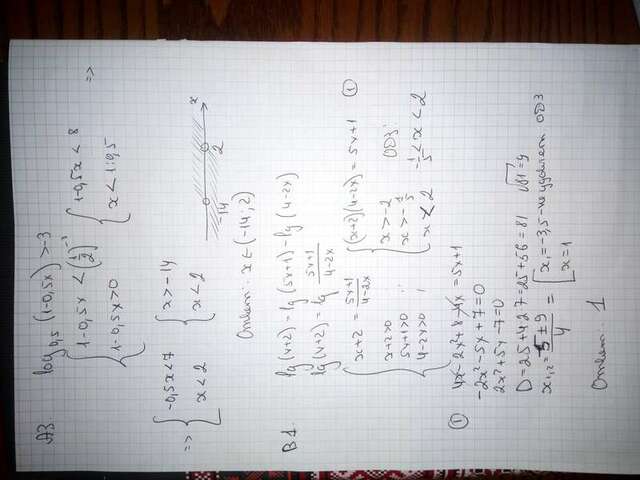 A3. log₀,₅ (1-0,5x) > -3
{ 1-0,5x < (1/2)⁻³ { 1-0,5x < 8 =>
{ 1-0,5x>0 { x < 1:0,5
=> { -0,5x<7 { x>-14
{ x < 2 { x<2
-14 2 x
Ответ: x ∈ (-14; 2)
B1 lg(x+2) = lg(5x+1) - lg(4-2x)
lg(x+2) = lg (5x+1)/(4-2x)
x+2 = (5x+1)/(4-2x) (x+2)(4-2x) = 5x+1 ①
{ x+2>0 { x>-2 ОДЗ:
{ 5x+1>0 ; { x>-1/5 -1/5 < x < 2
{ 4-2x>0 ; { x < 2
① 4x - 2x² + 8 - 4x = 5x+1
-2x² - 5x + 7 = 0
2x² + 5x - 7 = 0
D = 25+4·2·7 = 25+56 = 81 √81 = 9
x₁,₂ = (-5 ± 9)/4 = [ x₁ = -3,5 - не удовлет. ОДЗ
[ x = 1
Ответ: 1